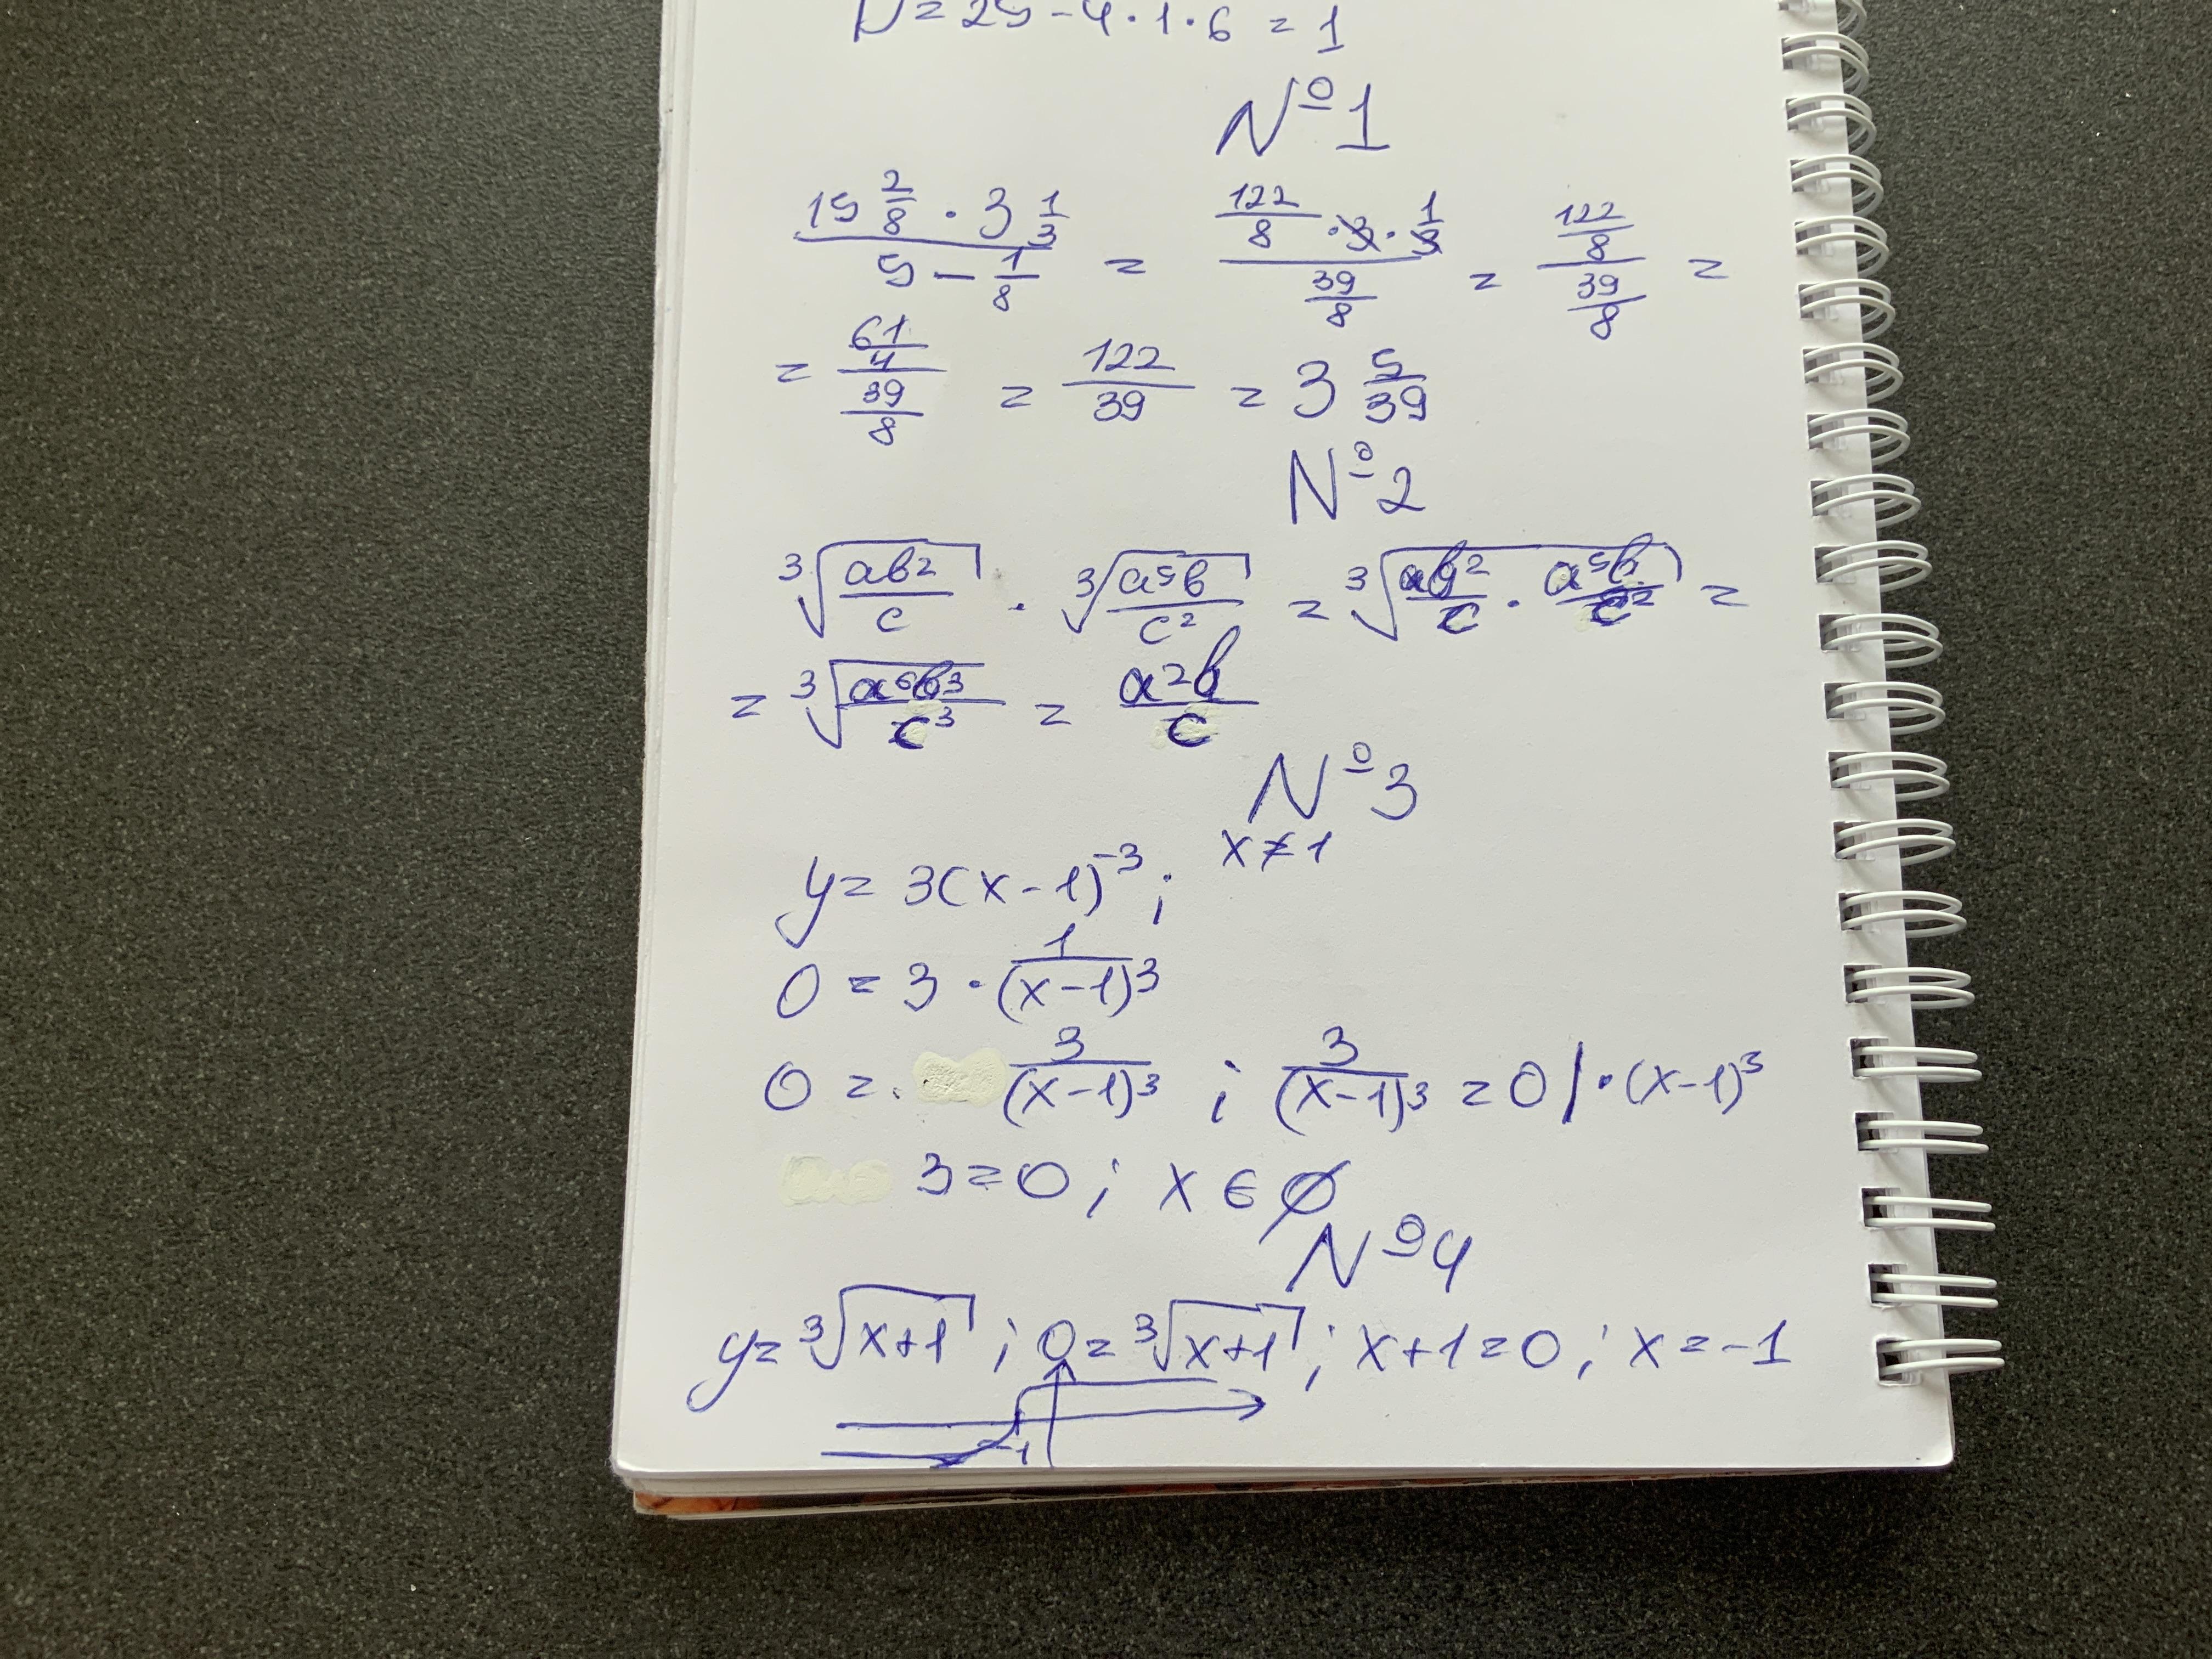 D = 25 - 4 · 1 · 6 = 1
№1
(15 2/8 · 3 1/3)/(5 - 1/8) = (122/8 · 3 · 1/3)/(39/8) = (122/8)/(39/8) =
= (61/4)/(39/8) = 122/39 = 3 5/39
№2
∛(ab²/c) · ∛(a⁵b/c²) = ∛(ab²/c · a⁵b/c²) =
= ∛(a⁶b³/c³) = a²b/c
№3
x ≠ 1
y = 3(x-1)⁻³ ;
0 = 3 · 1/(x-1)³
0 = 3/(x-1)³ ; 3/(x-1)³ = 0 | · (x-1)³
3 = 0 ; x ∈ ∅
№4
y = ∛(x+1) ; 0 = ∛(x+1) ; x+1 = 0 ; x = -1
-1